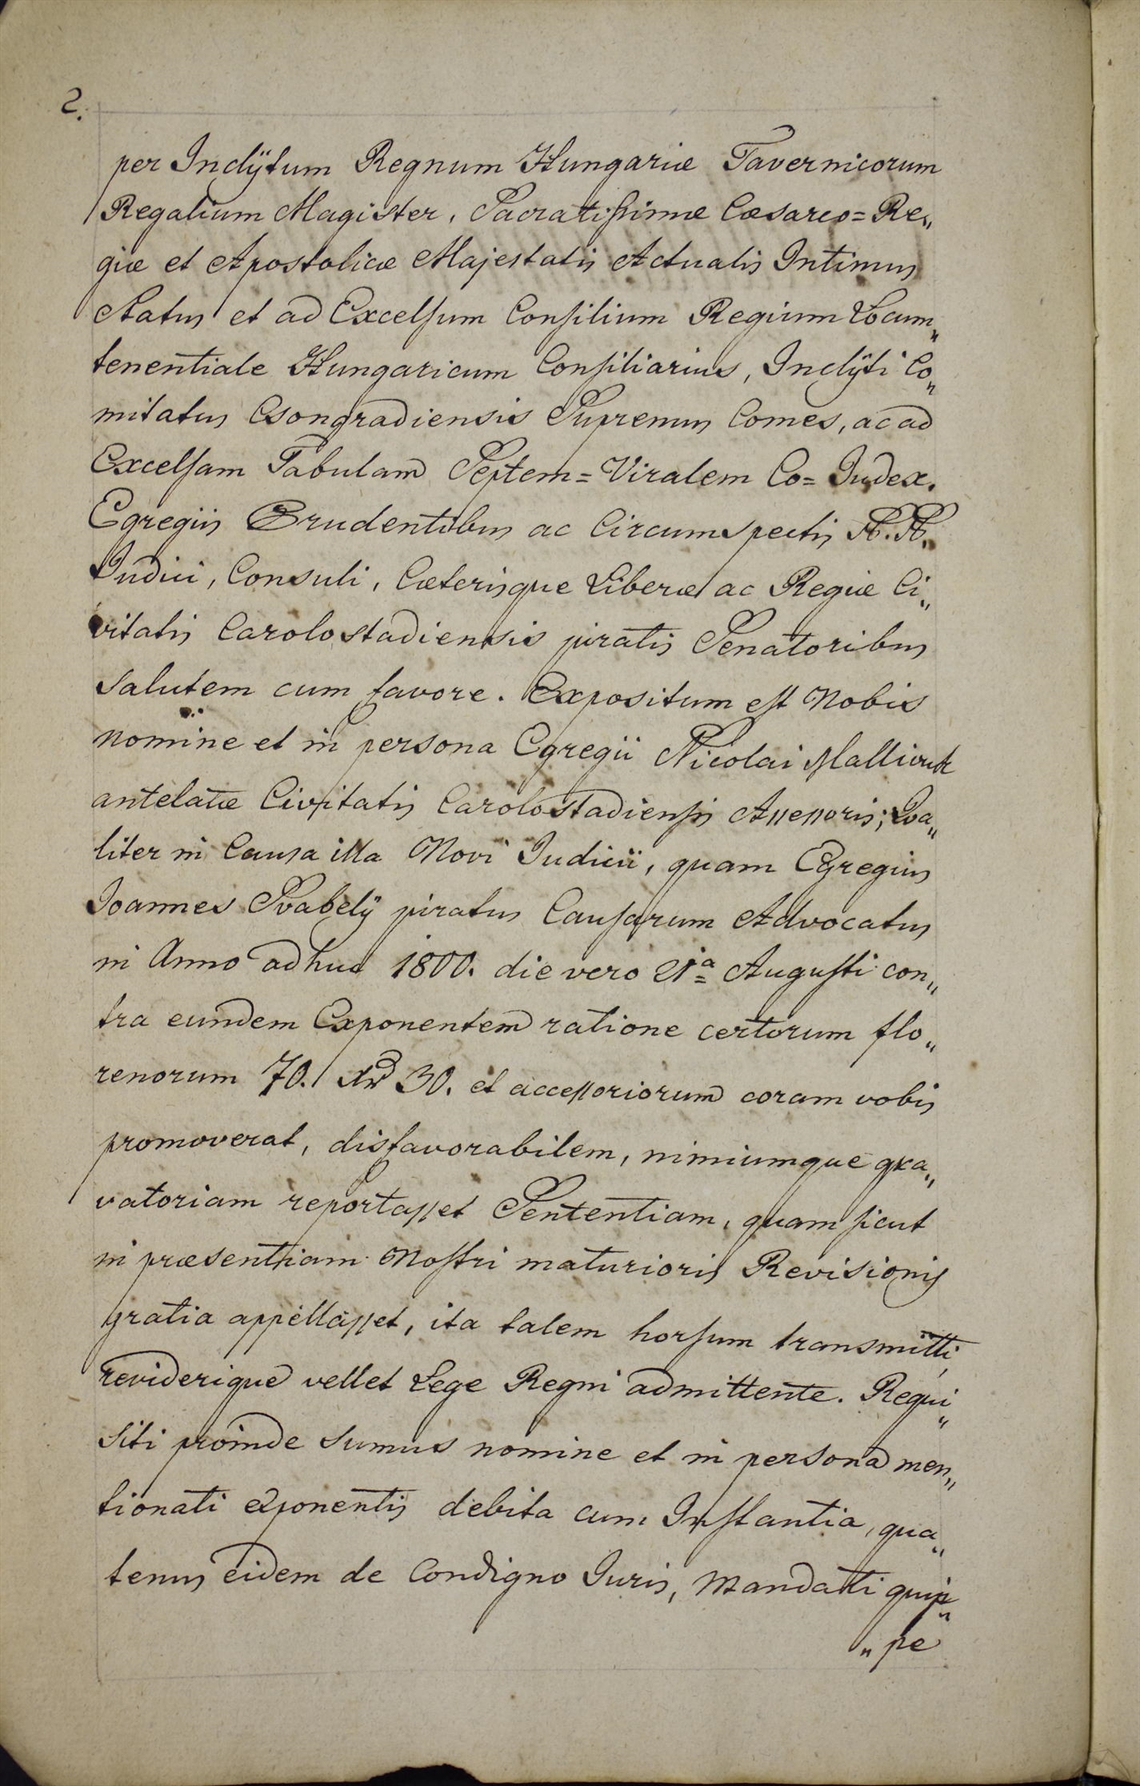 2.
per Inclÿtum Regnum Hungariæ Tavernicorum
Regalium Magister, Sacratissimæ Cæsareo=Re„
giæ et Apostolicæ Majestatis Actualis Intimus
Status et ad Excelsum Consilium Regium Locum„
tenentiale Hungaricum Consiliarius, Inclÿti Co„
mitatus Csongradiensis Supremus Comes, ac ad
Excelsam Tabulam Septem=Viralem Co=Iudex.
Egregiis Prudentibus ac Circumspectis
Iudici, Consuli, Cæterisque Liberæ ac Regiæ Ci„
vitatis Carolostadiensis juratis Senatoribus
Salutem cum favore. Expositum est Nobis
nomine et in persona Egregii Nicolai
antelatæ Civitatis Carolostadiensis Assessoris; Qua„
liter in Causa illa Novi Iudicii, quam Egregius
Joannes juratus Causarum Advocatus
in Anno adhuc 1800. die vero 21ª Augusti con„
tra eundem Exponentem ratione certorum flo„
renorum 70. xr 30. et accessoriorum coram vobis
promoverat, disfavorabilem, nimiumque gra„
vatoriam reportasset Sententiam, quam sicut
in præsentiam Nostri maturioris Revisionis
gratia appellasset, ita talem horsum transmitti,
reviderique vellet Lege Regni admittente. Requi„
siti proinde sumus nomine et in persona men„
tionati exponentis debita cum Instantia, qua„
tenus eidem de Condigno Iuris, Mandati quip„
„pe